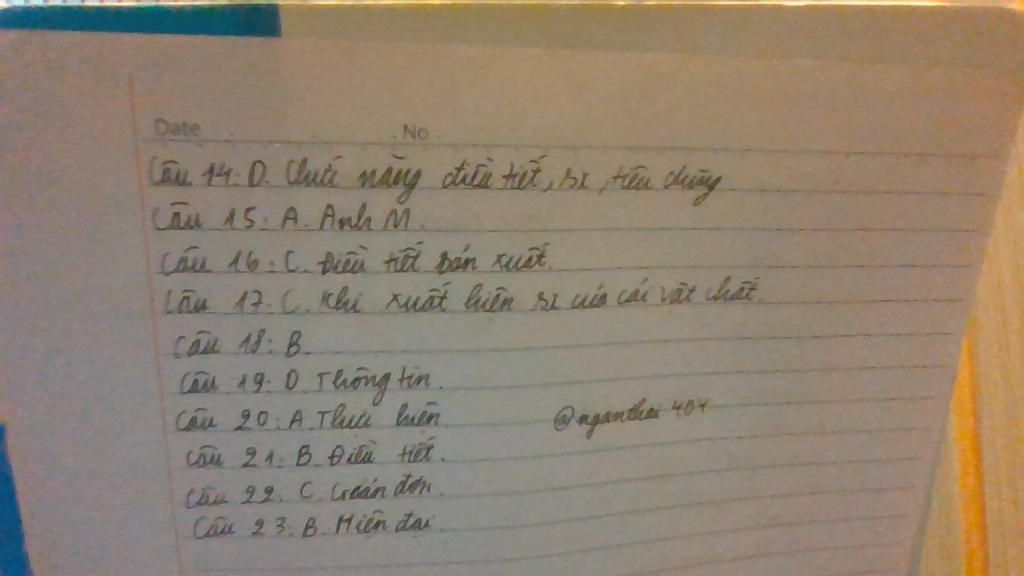 Date No
Câu 14: D. Chức năng điều tiết, sx, tiêu dùng
Câu 15: A. Anh M.
Câu 16: C. Điều tiết sản xuất.
Câu 17: C. Khi xuất hiện sx của cải vật chất.
Câu 18: B.
Câu 19: D. Thông tin.
Câu 20: A. Thực hiện. @nganthai404
Câu 21: B. Điều tiết.
Câu 22: C. Giản đơn.
Câu 23: B. Hiện đại.